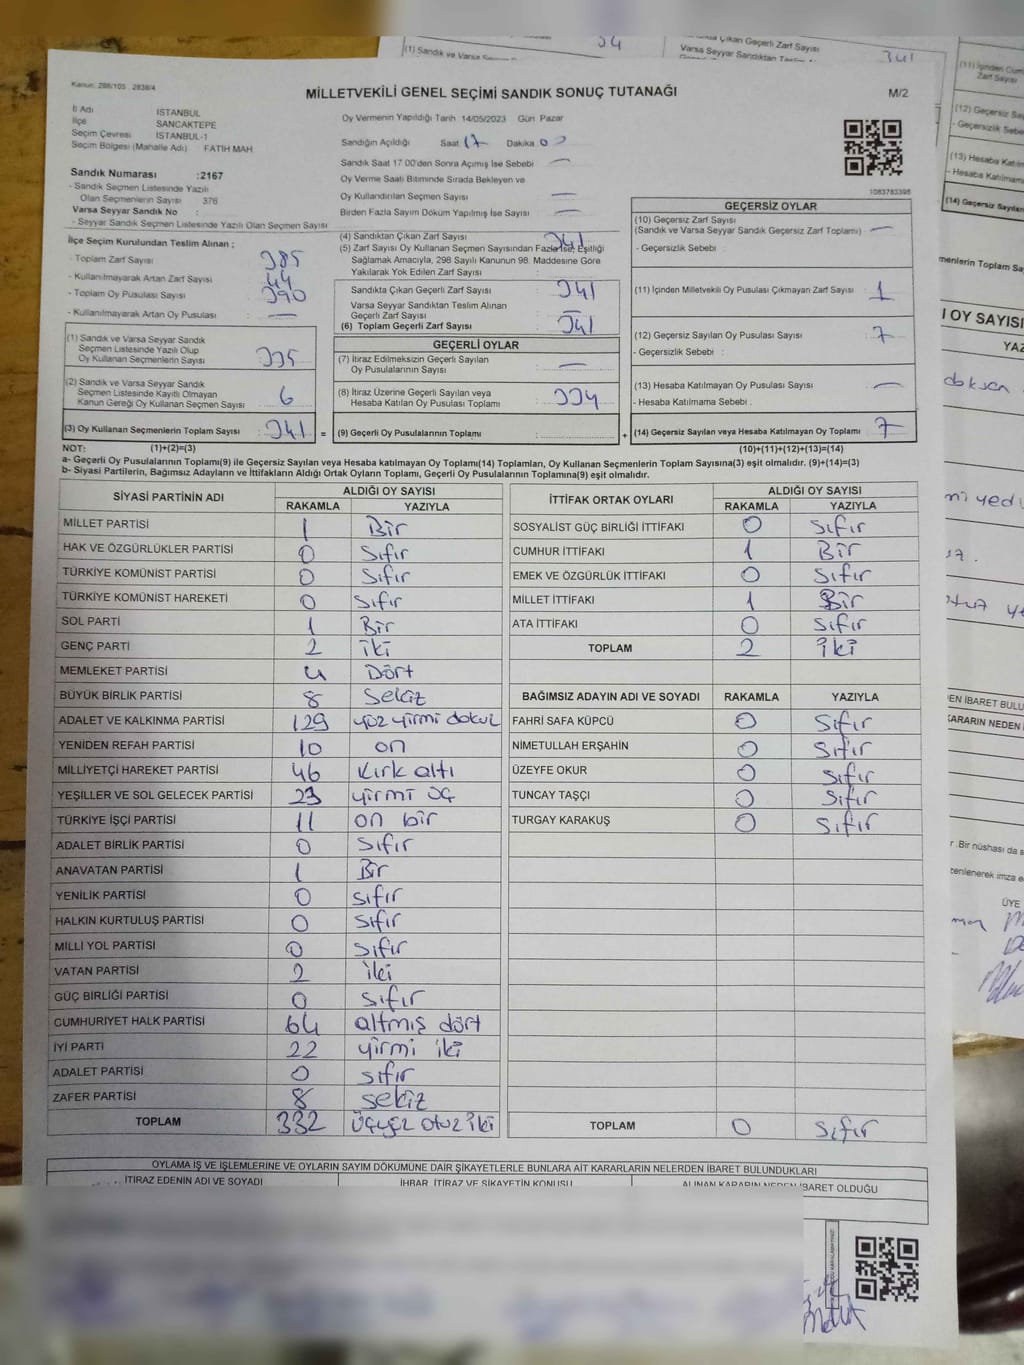 (1) Sandık ve Varsa Seyyar
54
Çıkan Geçerli Zarf Sayısı
Varsa Seyyar Sandıktan Teslim
341
Kanun: 298/105 2839/4
MİLLETVEKİLİ GENEL SEÇİMİ SANDIK SONUÇ TUTANAĞI
M/2
İl Adı İSTANBUL
İlçe SANCAKTEPE
Seçim Çevresi İSTANBUL-1
Seçim Bölgesi (Mahalle Adı) FATİH MAH
Oy Vermenin Yapıldığı Tarih 14/05/2023 Gün Pazar
Sandığın Açıldığı Saat 17 Dakika 00
Sandık Saat 17 00'den Sonra Açmış İse Sebebi —
Oy Verme Saati Bitiminde Sırada Bekleyen ve
Oy Kullandırılan Seçmen Sayısı —
Birden Fazla Sayım Döküm Yapılmış İse Sayısı —
1083783398
Sandık Numarası :2167
- Sandık Seçmen Listesinde Yazılı
Olan Seçmenlerin Sayısı 376
Varsa Seyyar Sandık No :
- Seyyar Sandık Seçmen Listesinde Yazılı Olan Seçmen Sayısı
İlçe Seçim Kurulundan Teslim Alınan ;
- Toplam Zarf Sayısı : 385
- Kullanılmayarak Artan Zarf Sayısı : 44
- Toplam Oy Pusulası Sayısı : 390
- Kullanılmayarak Artan Oy Pusulası : —
(1) Sandık ve Varsa Seyyar Sandık
Seçmen Listesinde Yazılı Olup
Oy Kullanan Seçmenlerin Sayısı : 335
(2) Sandık ve Varsa Seyyar Sandık
Seçmen Listesinde Kayıtlı Olmayan
Kanun Gereği Oy Kullanan Seçmen Sayısı : 6
(3) Oy Kullanan Seçmenlerin Toplam Sayısı : 341 =
(4) Sandıktan Çıkan Zarf Sayısı : 341
(5) Zarf Sayısı Oy Kullanan Seçmen Sayısından Fazla İse, Eşitliği
Sağlamak Amacıyla, 298 Sayılı Kanunun 98. Maddesine Göre
Yakılarak Yok Edilen Zarf Sayısı :
Sandıkta Çıkan Geçerli Zarf Sayısı : 341
Varsa Seyyar Sandıktan Teslim Alınan
Geçerli Zarf Sayısı : —
(6) Toplam Geçerli Zarf Sayısı : 341
GEÇERLİ OYLAR
(7) İtiraz Edilmeksizin Geçerli Sayılan
Oy Pusulalarının Sayısı : —
(8) İtiraz Üzerine Geçerli Sayılan veya
Hesaba Katılan Oy Pusulası Toplamı : 334
(9) Geçerli Oy Pusulalarının Toplamı : +
GEÇERSİZ OYLAR
(10) Geçersiz Zarf Sayısı
(Sandık ve Varsa Seyyar Sandık Geçersiz Zarf Toplamı) : —
- Geçersizlik Sebebi :
(11) İçinden Milletvekili Oy Pusulası Çıkmayan Zarf Sayısı : 1
(12) Geçersiz Sayılan Oy Pusulası Sayısı : 7
- Geçersizlik Sebebi :
(13) Hesaba Katılmayan Oy Pusulası Sayısı : —
- Hesaba Katılmama Sebebi .
(14) Geçersiz Sayılan veya Hesaba Katılmayan Oy Toplamı : 7
NOT: (1)+(2)=(3) (10)+(11)+(12)+(13)=(14)
a- Geçerli Oy Pusulalarının Toplamı(9) ile Geçersiz Sayılan veya Hesaba katılmayan Oy Toplamı(14) Toplamları, Oy Kullanan Seçmenlerin Toplam Sayısına(3) eşit olmalıdır. (9)+(14)=(3)
b- Siyasi Partilerin, Bağımsız Adayların ve İttifakların Aldığı Ortak Oyların Toplamı, Geçerli Oy Pusulalarının Toplamına(9) eşit olmalıdır.
SİYASİ PARTİNİN ADI ALDIĞI OY SAYISI
RAKAMLA YAZIYLA
MİLLET PARTİSİ 1 Bir
HAK VE ÖZGÜRLÜKLER PARTİSİ 0 Sıfır
TÜRKİYE KOMÜNİST PARTİSİ 0 Sıfır
TÜRKİYE KOMÜNİST HAREKETİ 0 Sıfır
SOL PARTİ 1 Bir
GENÇ PARTİ 2 iki
MEMLEKET PARTİSİ 4 Dört
BÜYÜK BİRLİK PARTİSİ 8 Sekiz
ADALET VE KALKINMA PARTİSİ 129 yüz yirmi dokuz
YENİDEN REFAH PARTİSİ 10 on
MİLLİYETÇİ HAREKET PARTİSİ 46 Kırk altı
YEŞİLLER VE SOL GELECEK PARTİSİ 23 yirmi üç
TÜRKİYE İŞÇİ PARTİSİ 11 on bir
ADALET BİRLİK PARTİSİ 0 Sıfır
ANAVATAN PARTİSİ 1 Bir
YENİLİK PARTİSİ 0 Sıfır
HALKIN KURTULUŞ PARTİSİ 0 Sıfır
MİLLİ YOL PARTİSİ 0 Sıfır
VATAN PARTİSİ 2 iki
GÜÇ BİRLİĞİ PARTİSİ 0 Sıfır
CUMHURİYET HALK PARTİSİ 64 altmış dört
İYİ PARTİ 22 yirmi iki
ADALET PARTİSİ 0 sıfır
ZAFER PARTİSİ 8 sekiz
TOPLAM 332 üçyüz otuz iki
İTTİFAK ORTAK OYLARI ALDIĞI OY SAYISI
RAKAMLA YAZIYLA
SOSYALİST GÜÇ BİRLİĞİ İTTİFAKI 0 Sıfır
CUMHUR İTTİFAKI 1 Bir
EMEK VE ÖZGÜRLÜK İTTİFAKI 0 Sıfır
MİLLET İTTİFAKI 1 Bir
ATA İTTİFAKI 0 Sıfır
TOPLAM 2 iki
BAĞIMSIZ ADAYIN ADI VE SOYADI RAKAMLA YAZIYLA
FAHRİ SAFA KÜPCÜ 0 Sıfır
NİMETULLAH ERŞAHİN 0 Sıfır
ÜZEYFE OKUR 0 Sıfır
TUNCAY TAŞÇI 0 Sıfır
TURGAY KARAKUŞ 0 Sıfır
TOPLAM 0 Sıfır
OYLAMA İŞ VE İŞLEMLERİNE VE OYLARIN SAYIM DÖKÜMÜNE DAİR ŞİKAYETLERLE BUNLARA AİT KARARLARIN NELERDEN İBARET BULUNDUKLARI
İTİRAZ EDENİN ADI VE SOYADI İHBAR, İTİRAZ VE ŞİKAYETİN KONUSU ALINAN KARARIN NEDEN İBARET OLDUĞU
Zarf Sayısı
(12) Geçersiz
- Geçersizlik Se
(13) Hesaba Katılma
- Hesaba Katılmama
(14) Geçersiz Sayılan
menlerin Toplam Sa
I OY SAYISI
YAZ
doksan
yedi
EN İBARET BULU
KARARIN NEDEN
r .Bir nüshası da s
tenlenerek imza e
ÜYE